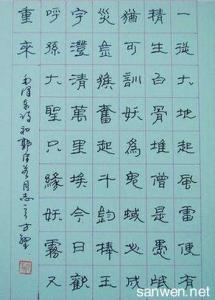 一從大地起風雷便有
精生白骨堆僧是愚氓
猶可訓妖為鬼蜮必成
災金猴奮起千鈞棒玉
宇澄清萬里埃今日歡
呼孫大聖只緣妖霧又
重來
毛澤東詩和郭沫若同志
sanwen.net